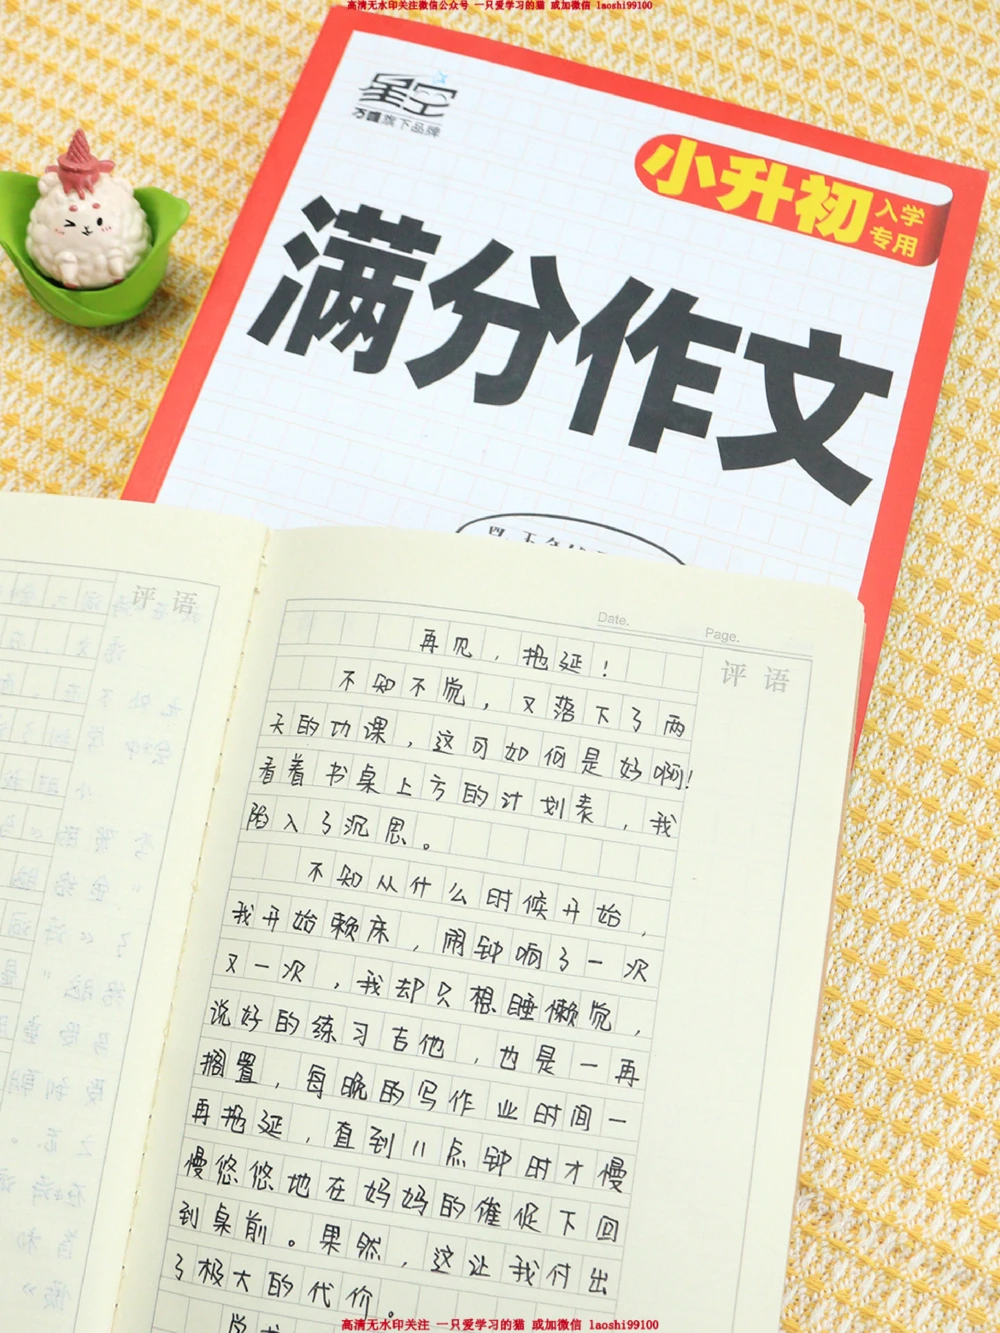 高清无水印关注微信公众号 一只爱学习的猫 或加微信 laoshi99100
星空
万唯旗下品牌
小升初
入学
专用
满分作文
评语
Date.
Page.
评语
再见，拖延！
不知不觉，又落下了两
天的功课，这可如何是好啊！
看着书桌上方的计划表，我
陷入了沉思。
不知从什么时候开始，
我开始赖床，闹钟响了一次
又一次，我却只想睡懒觉，
说好的练习吉他，也是一再
搁置，每晚的写作业时间一
再拖延，直到11点钟时才慢
慢悠悠地在妈妈的催促下回
到桌前。果然，这让我付出
了极大的代价。
高清无水印关注 一只爱学习的猫 或加微信 laoshi99100